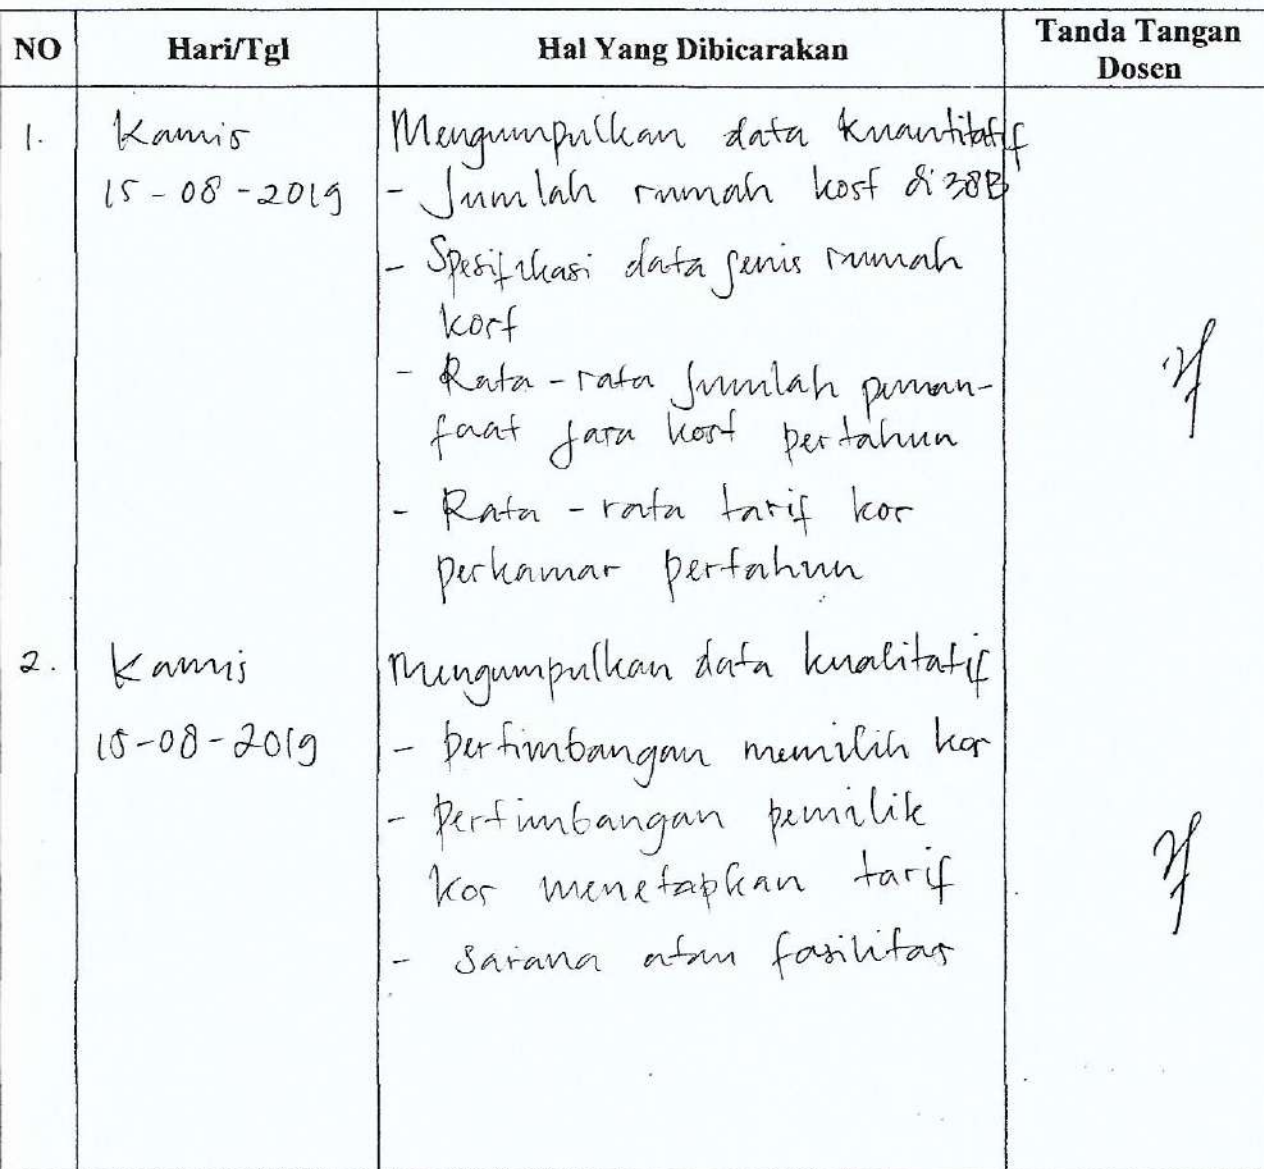 NO Hari/Tgl Hal Yang Dibicarakan Tanda Tangan Dosen
1. Kamis Mengumpulkan data kuantitatif
15-08-2019 - Jumlah rumah kost di 38B
- Spesifikasi data jenis rumah
kost
- Rata-rata jumlah peman-
faat jasa kost pertahun
- Rata-rata tarif kos
perkamar pertahun
2. Kamis Mengumpulkan data kualitatif
15-08-2019 - pertimbangan memilih kos
- pertimbangan pemilik
kos menetapkan tarif
- sarana atau fasilitas